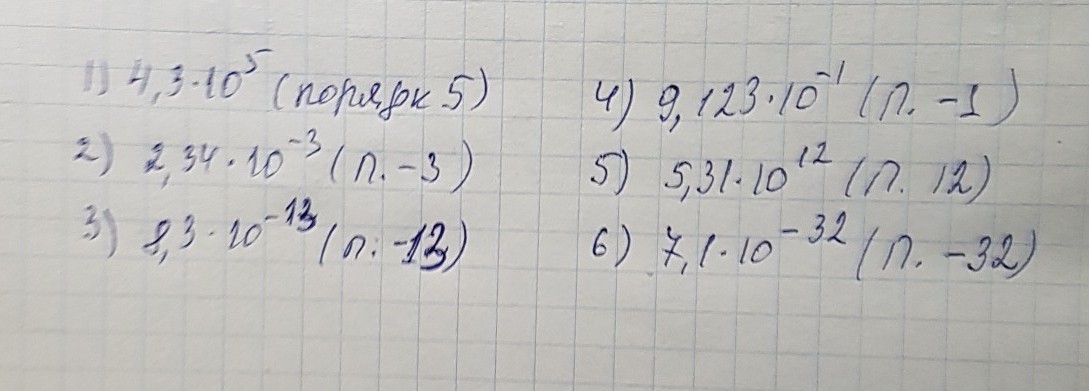 1) 4,3·10⁵ (порядк 5)
2) 2,34·10⁻³ (п. -3)
3) 8,3·10⁻¹³ (п. -13)
4) 9,123·10⁻¹ (п. -1)
5) 5,31·10¹² (п. 12)
6) 7,1·10⁻³² (п. -32)